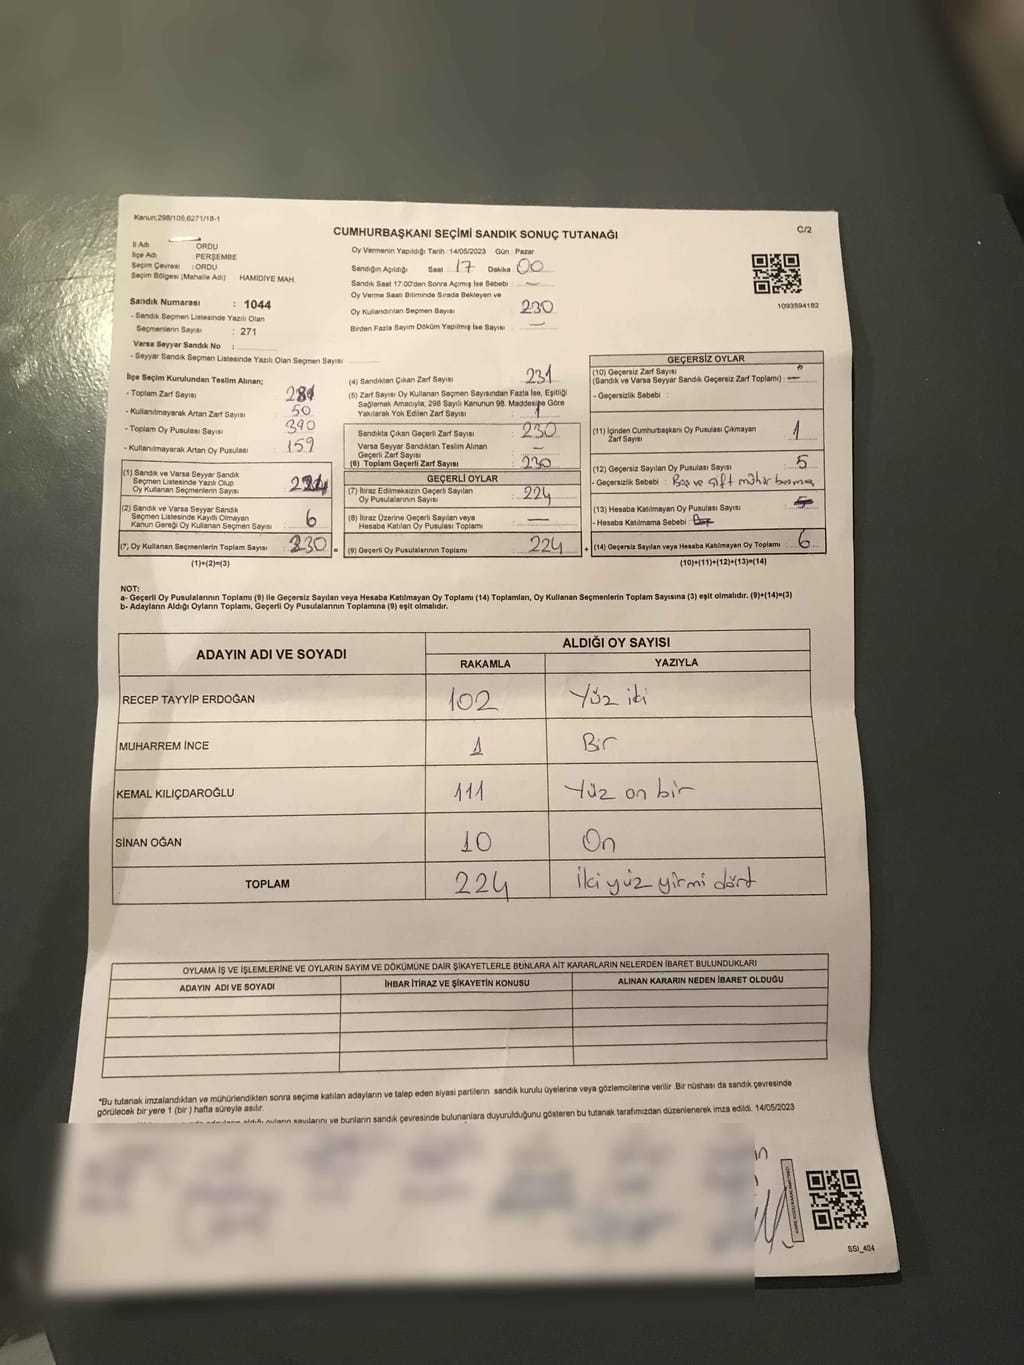 Kanun;298/105,6271/18-1
CUMHURBAŞKANI SEÇİMİ SANDIK SONUÇ TUTANAĞI
C/2
İl Adı ORDU
İlçe Adı PERŞEMBE
Seçim Çevresi : ORDU
Seçim Bölgesi (Mahalle Adı) HAMİDİYE MAH.
Oy Vermenin Yapıldığı Tarih :14/05/2023 Gün : Pazar
Sandığın Açıldığı Saat 17 Dakika 00
Sandık Saat 17:00'den Sonra Açımış İse Sebebi : —
Oy Verme Saati Bitiminde Sırada Bekleyen ve
Oy Kullandırılan Seçmen Sayısı : 230
Birden Fazla Sayım Döküm Yapılmış İse Sayısı : —
1093594182
Sandık Numarası : 1044
- Sandık Seçmen Listesinde Yazılı Olan
Seçmenlerin Sayısı : 271
Varsa Seyyar Sandık No :
- Seyyar Sandık Seçmen Listesinde Yazılı Olan Seçmen Sayısı:
İlçe Seçim Kurulundan Teslim Alınan;
- Toplam Zarf Sayısı :
- Kullanılmayarak Artan Zarf Sayısı : 50
- Toplam Oy Pusulası Sayısı : 390
- Kullanılmayarak Artan Oy Pusulası : 159
(1) Sandık ve Varsa Seyyar Sandık
Seçmen Listesinde Yazılı Olup
Oy Kullanan Seçmenlerin Sayısı : 224
(2) Sandık ve Varsa Seyyar Sandık
Seçmen Listesinde Kayıtlı Olmayan
Kanun Gereği Oy Kullanan Seçmen Sayısı : 6
Oy Kullanan Seçmenlerin Toplam Sayısı : 230 =
(1)+(2)=(3)
(4) Sandıktan Çıkan Zarf Sayısı : 231
(5) Zarf Sayısı Oy Kullanan Seçmen Sayısından Fazla İse, Eşitliği
Sağlamak Amacıyla, 298 Sayılı Kanunun 98. Maddesine Göre
Yakılarak Yok Edilen Zarf Sayısı : 1
Sandıkta Çıkan Geçerli Zarf Sayısı : 230
Varsa Seyyar Sandıktan Teslim Alınan
Geçerli Zarf Sayısı : —
(6) Toplam Geçerli Zarf Sayısı : 230
GEÇERLİ OYLAR
(7) İtiraz Edilmeksizin Geçerli Sayılan
Oy Pusulalarının Sayısı : 224
(8) İtiraz Üzerine Geçerli Sayılan veya
Hesaba Katılan Oy Pusulası Toplamı : —
(9) Geçerli Oy Pusulalarının Toplamı : 224 +
GEÇERSİZ OYLAR
(10) Geçersiz Zarf Sayısı
(Sandık ve Varsa Seyyar Sandık Geçersiz Zarf Toplamı) : —
- Geçersizlik Sebebi :
(11) İçinden Cumhurbaşkanı Oy Pusulası Çıkmayan
Zarf Sayısı : 1
(12) Geçersiz Sayılan Oy Pusulası Sayısı : 5
- Geçersizlik Sebebi : Boş ve çift mühür basma
(13) Hesaba Katılmayan Oy Pusulası Sayısı :
- Hesaba Katılmama Sebebi :
(14) Geçersiz Sayılan veya Hesaba Katılmayan Oy Toplamı : 6
(10)+(11)+(12)+(13)=(14)
NOT:
a- Geçerli Oy Pusulalarının Toplamı (9) ile Geçersiz Sayılan veya Hesaba Katılmayan Oy Toplamı (14) Toplamları, Oy Kullanan Seçmenlerin Toplam Sayısına (3) eşit olmalıdır. (9)+(14)=(3)
b- Adayların Aldığı Oyların Toplamı, Geçerli Oy Pusulalarının Toplamına (9) eşit olmalıdır.
ADAYIN ADI VE SOYADI
ALDIĞI OY SAYISI
RAKAMLA YAZIYLA
RECEP TAYYİP ERDOĞAN 102 Yüz iki
MUHARREM İNCE 1 Bir
KEMAL KILIÇDAROĞLU 111 Yüz on bir
SİNAN OĞAN 10 On
TOPLAM 224 İki yüz yirmi dört
OYLAMA İŞ VE İŞLEMLERİNE VE OYLARIN SAYIM VE DÖKÜMÜNE DAİR ŞİKAYETLERLE BUNLARA AİT KARARLARIN NELERDEN İBARET BULUNDUKLARI
ADAYIN ADI VE SOYADI İHBAR İTİRAZ VE ŞİKAYETİN KONUSU ALINAN KARARIN NEDEN İBARET OLDUĞU
*Bu tutanak imzalandıktan ve mühürlendikten sonra seçime katılan adayların ve talep eden siyasi partilerin sandık kurulu üyelerine veya gözlemcilerine verilir .Bir nüshası da sandık çevresinde
görülecek bir yere 1 (bir ) hafta süreyle asılır.
aldığı oyların sayılarını ve bunların sandık çevresinde bulunanlara duyurulduğunu gösteren bu tutanak tarafımızdan düzenlenerek imza edildi. 14/05/2023
SSI_404